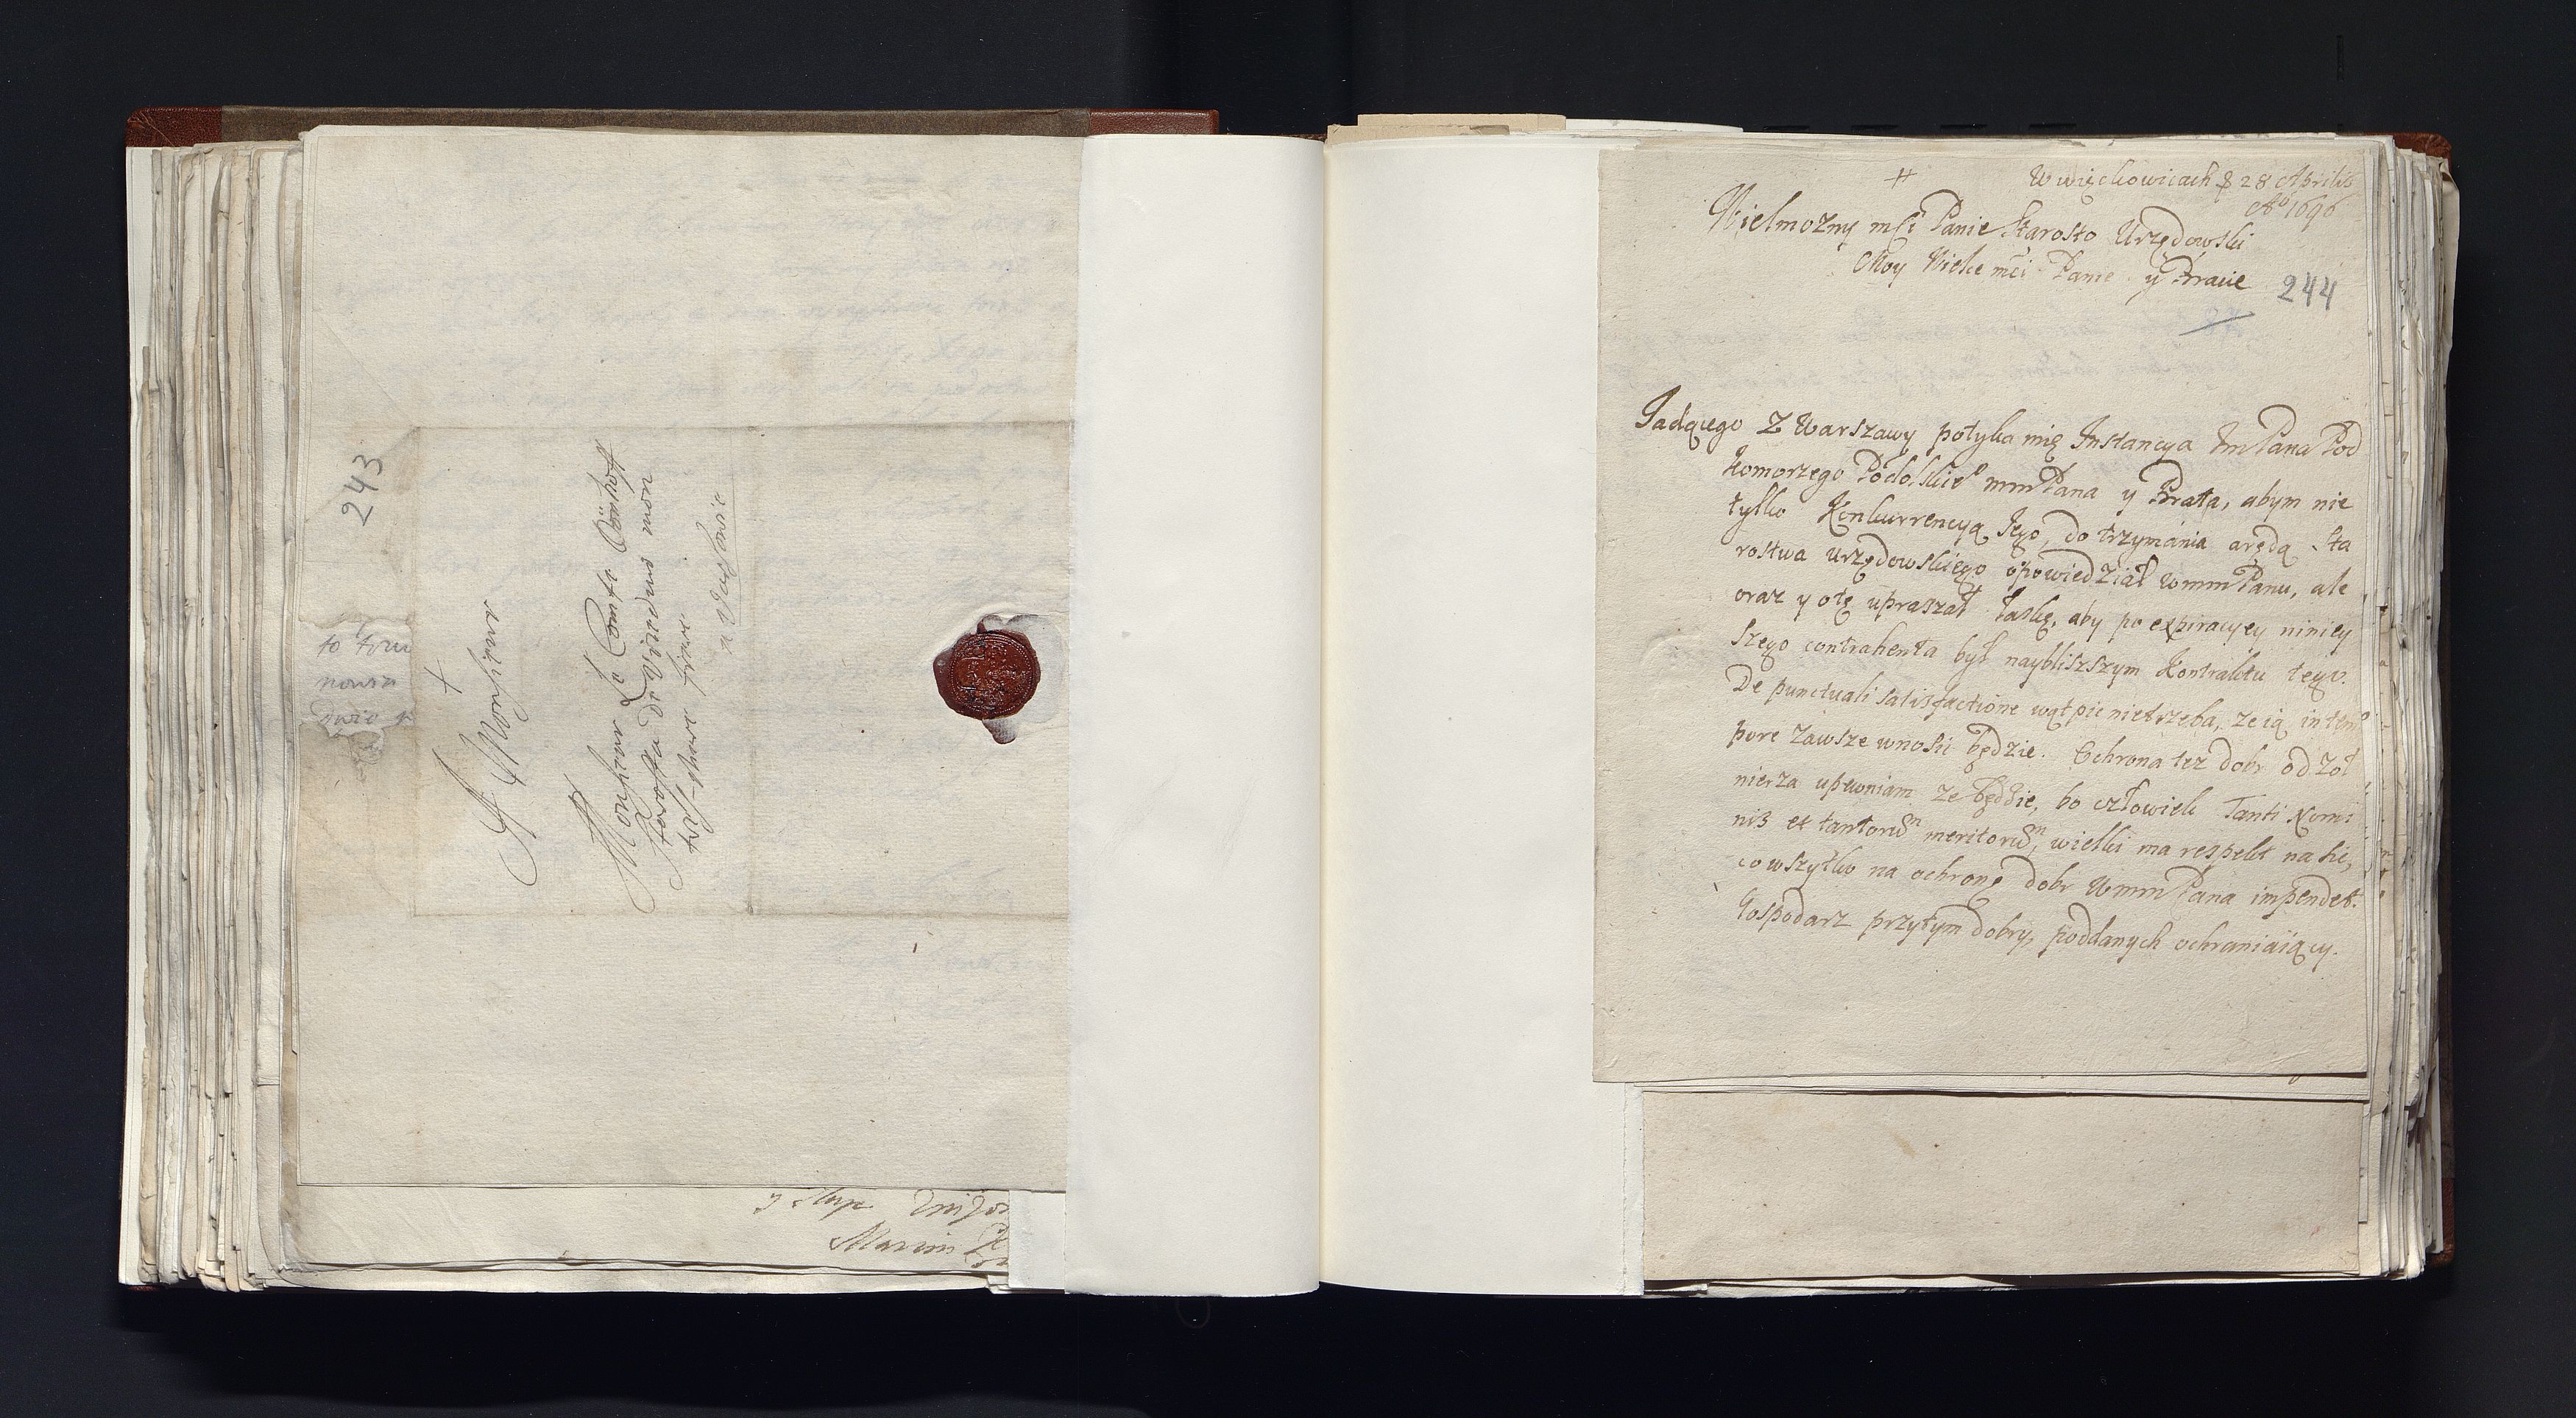 243
to tru
nowin
dwie
A Monsieur
Monsieur Le Comte Dönhoff
Starosta De Vrzeduw mon
tres-chere frere
a Varsovie
y sługa
Marcin
W więckowicach 28 Aprilis
Aº 1696
Wielmozny mći Panie Starosto Urzędowski
Moy Wielce mći Panie y Bracie
244
Jadącego z Warszawy potyka mię Instancya Im Pana Pod
komorzego Podolskiegº mm Pana y Brata, abym nie
tylko Konkurrencyą Jego, do trzymánia arędą Sta
rostwa urzędowskiego opowiedział Wmm Panu, ale
oraz y otę upraszał łaskę, aby po expiracyey niniey
szego contrahenta był naybliszszym Kontraktu tego.
De punctuali satisfactione wątpić nietrzeba, ze ią in tem
pore zawsze wnosić będzie. Ochrona tez dobr od zoł
nierza upewniam ze będzie, bo człowiek Tanti Nomi
nis et tantorum meritorum, wielki ma respekt na się,
co wszytko na ochronę dobr Wmm Pana impendet.
Gospodarz przytym dobry, poddanych ochraniaiący.